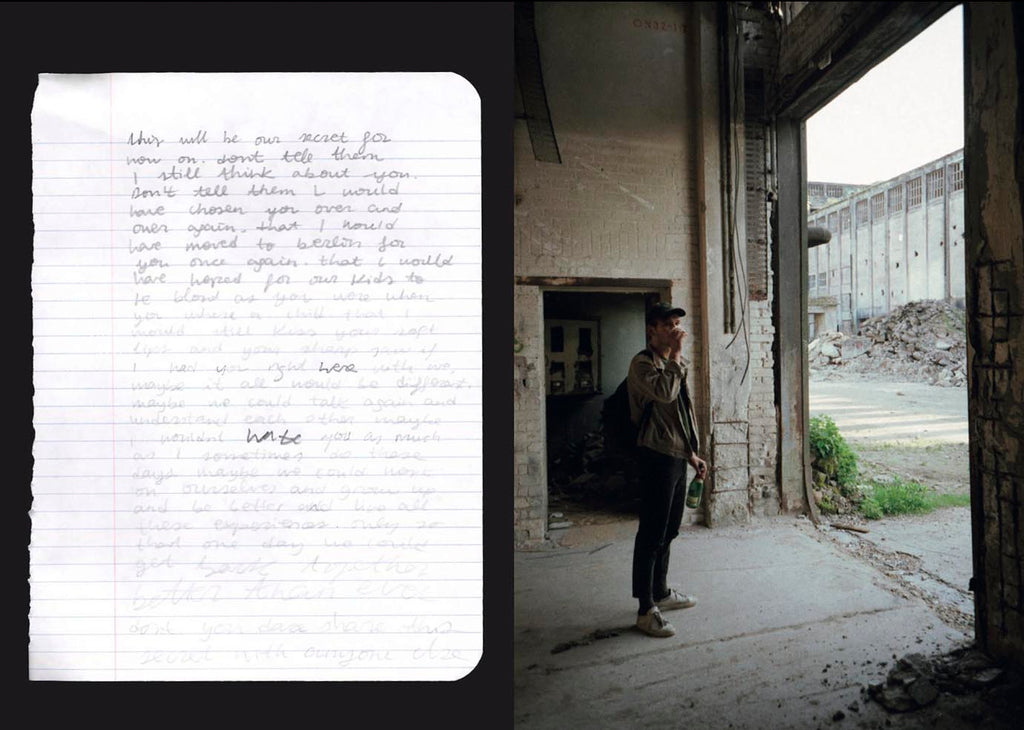 this will be our secret for
now on. don't tell them
I still think about you.
Don't tell them I would
have chosen you over and
over again. that I would
have moved to berlin for
you once again. that I would
have hoped for our kids to
be blond as you were when
you where a child that I
would still kiss your soft
lips and your sharp jaw if
I had you right here with me,
maybe it all would be different.
maybe we could talk again and
understand each other maybe
I wouldnt hate you as much
as I sometimes do these
days maybe we could work
on ourselves and grow up
and be better and live all
these experiences. only so
that one day we could
get back together
better than ever
dont you dare share this
secret with anyone else